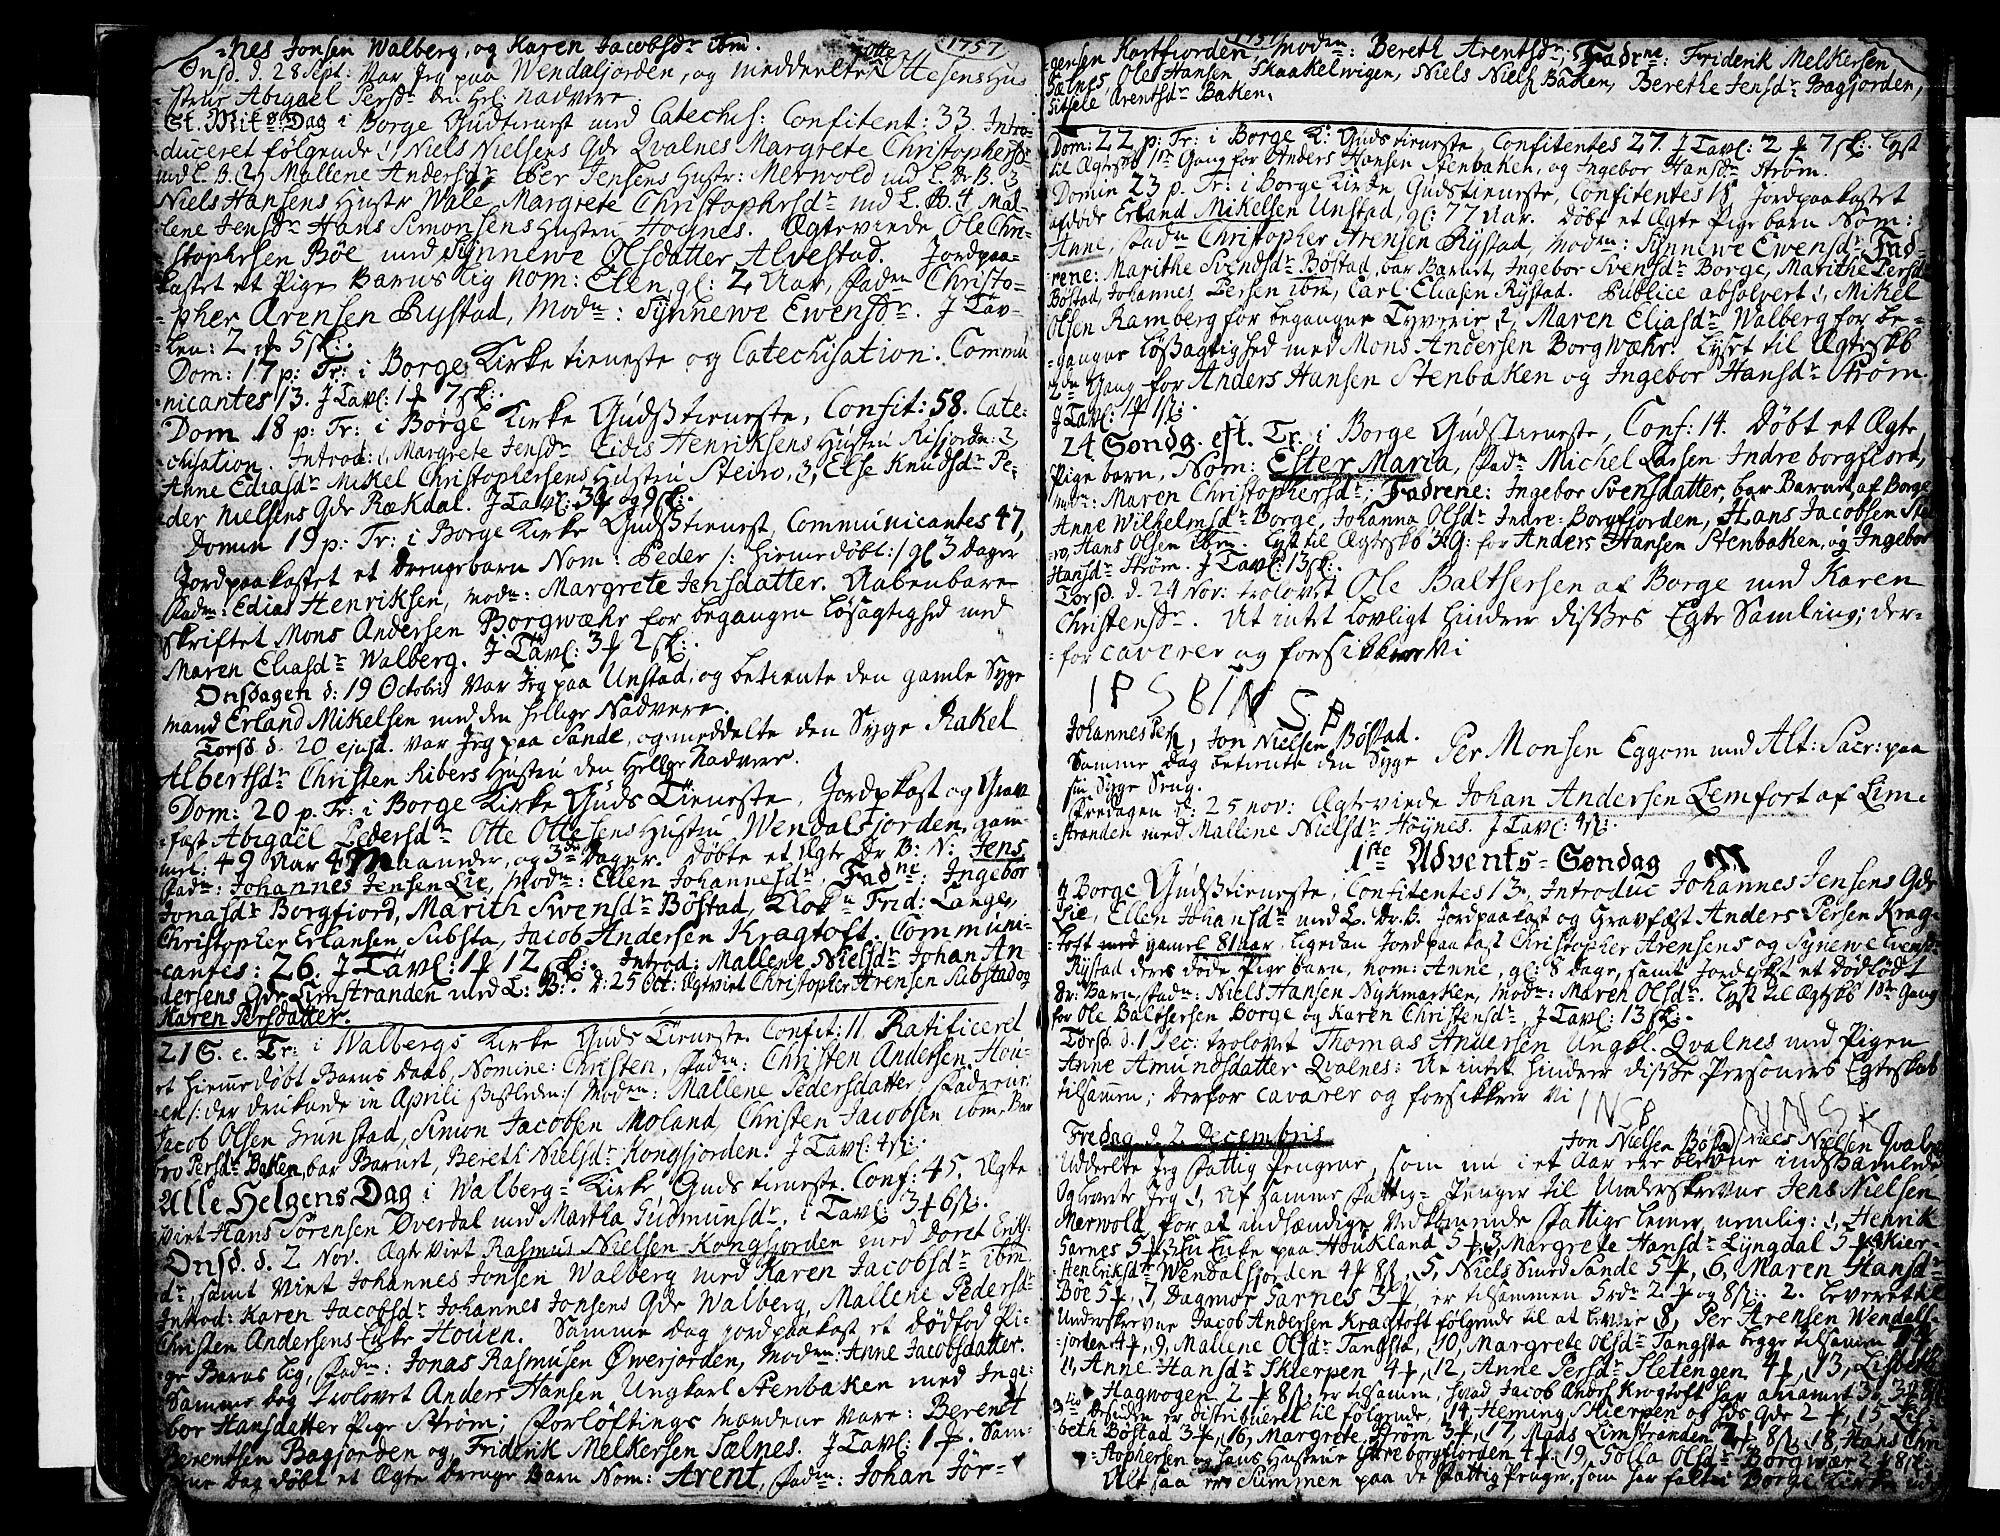 1757
-nes Jonsen Walberg, og Karen Jacobsdr ibm.
Onsd. d. 28 Sept: Var Jeg paa Wendalfjorden, og meddeelte Otte Ottesens Hus
strue Abigael Persdr den Hel: Nadvere.
St. Mik: Dag i Borge Gudstienest med Catechis: Confitent: 33. Intro-
duceret følgende 1, Niels Nielsens Qde Qvalnes Margrete Christophersdr
med L. B. 2, Mallene Andersdr Iver Jensens Hustr: Merwold med L. Dr B. 3
Niels Hansens Hustr Wale, Margrete Christophersdr med L. B. 4 Mal-
lene Jensdr Hans Simonsens Hustru Høynes. Ægteviede Ole Chri-
stophersen Böe med Synnewe Olsdatter Alvestad. Jordpaa-
kastet et Pige Barns Lig Nom: Elen, gl: 2 Aar, Fadn Christo-
pher Arensen Rystad, Modn: Synnewe Ewensdr. J Tav-
len: 2 ɟ 5 sk:
Dom: 17 p: Tr: i Borge Kirke tieneste og Catechisation. Commu
nicantes 13. J Tavl: 1 ɟ 7 sk:
Dom 18 p: Tr: i Borge Kirke Gudstieneste, Confit: 58. Cate-
chisation. Introd: 1, Margrete Jensdr Edis Henriksens Hustru Risjordn: 2,
Anne Ediasdr Mikel Christophersens Hustru Steiro, 3, Else Knudsdr Pe-
der Nielsens Qde Rækdal. J Tavl: 3 ɟ og 9 sk:
Domin 19 p: Tr: i Borge Kirke Gudstienest, Communicantes 47,
Jordpaakastet et Drengebarn Nom: Peder /: Hiemedøbt :/ gl 3 Dager
Fadn: Edias Henriksen, Modn: Margrete Jensdatter. Aabenbare
skriftet Mons Andersen Borgwæhr for begangen Løsagtighed med
Maren Eliasdr Walberg. J Tavl: 3 ɟ 2 sk:
Onsdagen d: 19 Octobris var Jeg paa Unstad, og betiente den gamle Syge
mand Erland Mikelsen med den hellige Nadvere.
Torsd d. 20 ejusd. var Jeg paa Sande, og meddelte den Syge Rakel
Albertsdr Christen Ribers Hustru den Hellige Nadvere.
Dom: 20 p. Tr: i Borge Kirke Guds Tieneste, Jordpkast og Grav
fæst Abigaël Pedersdr Otte Ottesens Hustru Wendalsfjorden, gam-
mel: 49 Aar 4 Maaneder, og 3de Dager. Døbte et Ægte Dr B: N: Jens
Fadn: Johannes Jensen Lie, Modn: Ellen Johannesdr, Fadne: Ingebor
Jonasdr Borgfiord, Marith Swensdr Böstad, Klokn Frid: Lange,
Christopher Erlansen Substa, Jacob Andersen Kragtoft. Communi-
cantes: 26. J Tavl: 1 ɟ 12 sk: Introd: Mallene Nielsdr Johan An
dersens Qde Limstranden med L: B: d: 25 Oct: Ægtviet Christopher Arensen Substad og
Karen Persdatter.
21 S. e. Tr: i Walbergs Kirke Guds Tieneste. Confit: 11. Ratificeret
et hiemedøbt Barns Daab, Nomine: Christen, Fadn: Christen Andersen Hou-
en /: der druknede in Aprili :/ Modn: Mallene Pedersdatter, Fadrene:
Jacob Olsen Grunstad, Simon Jacobsen Moland, Christen Jacobsen ibm, Bar
bro Persdr Baken, bar Barnet, Bereth Nielsdr Kongsjorden. J Tavl: 4 sk:
Alle Helgens Dag i Walberg= Kirke Guds tieneste. Conf: 45. Ægte
viet Hans Sörensen Øverdal med Martha Gudmunsdr, i Tavl: 3 ɟ 6 sk:
Onsd. d. 2 Nov. Ægteviet Rasmus Nielsen Kongsjorden med Doret Erik-
dr, samt viet Johannes Jonsen Walberg med Karen Jacobsdr ibm
Introd: Karen Jacobsdr Johannes Jonsens Qde Walberg, Mallene Pedersdr
Christen Andersens Enke Houen. Samme Dag jordpaakast et dødfød Pi-
ge Barns lig, Fadn: Jonas Rasmusen Øwerjorden, Modn: Anne Jacobsdatter.
Samme dag trolovet Anders Hansen Ungkarl Stenbaken med Inge-
bor Hansdatter Pige Strøm; Forlöftings Mændene vare: Berent
Berentsen Bagjorden og Friderik Melkersen Sælnes. J Tavl: 1 ɟ. Sam-
me dag døbt et Ægte Drenge Barn Nom: Arent, Fadn: Johan Jør-
1757
gensen Kortfjorden, Modn: Bereth Arentsdr, Fadrne: Friderik Melkersen
Sælnes, Ole Hansen Skaakelwigen, Niels Niels: Baken, Berethe Jensdr Bagjorden,
Sitsele Arentsdr Baken.
Dom: 22 p: Tr: i Borge K: Guds tieneste, Confitentes 27. J Tavl: 2 ɟ 7 sk: Lyst
til Ægtskb 1te Gang for Anders Hansen Stenbaken, og Ingebor Hansdr Strøm.
Domin 23 p. Tr: i Borge Kirke Gudstieneste, Confitentes 18, Jordpaakastet
afdøde Erland Mikelsen Unstad, gl: 77 Aar. Døbt et Ægte Pige barn Nom:
Anne, Fadn Christopher Arensen Rystad, Modn: Synnewe Ewensdr, Fad-
rene: Marithe Svendsdr Böstad, bar Barnet, Ingebor Svensdr Borge, Marithe Persdr
Böstad, Johannes Persen ibm, Carl Eliasen Rystad. Publice absolvert 1, Mikel
Olsen Ramberg for begangne Tyverie, 2, Maren Eliasdr Walberg for be-
gangne Løsagtighed med Mons Andersen Borgwæhr. Lyst til Ægteskb
2dn Gang for Anders Hansen Stenbaken og Ingebor Hansdr Strøm.
J Tavl: 1 ɟ 1 sk:
24 Søndg. eft. Tr: i Borge Gudstieneste, Conf: 14. Døbt et Ægte
Pige barn, Nom: Ester Maria, Fadn Michel Larsen Indre borgfiord,
Modn: Maren Christophersdr; Fadrene: Ingebor Svensdatter bar Barnet af Borge
Anne Wilhelmsdr Borge, Johanna Olsdr Indre-Borgfjorden, Hans Jacobsen Stei
ro, Hans Olsen ibm. Lyst til Ægteskb 3 G: for Anders Hansen Stenbaken, og Ingebor
Hansdr Strøm. J Tavl: 13 sk:
Torsd. d. 24 Nov: trolovet Ole Baltsersen af Borge med Karen
Christensdr. At intet lovligt hindrer disses Egte Samling; der-
for caverer og forsikkrer Vi
IPS BINSB
Johannes Pers:, Jon Nielsen Böstad.
Samme Dag betiente den Syge Per Monsen Eggom med Alt: Sacr: paa
sin Syge Seng.
Fredagen d: 25 nov: Ægteviede Johan Andersen Lemfort af Lim-
stranden med Mallene Nielsdr Høynes. J Tavl: 4 sk:
1ste Advents=Søndag
J Borge Gudstieneste, Confitentes 13, Introduc Johannes Jensens Qde
Lie, Ellen Johansdr med L. Dr. B. Jordpaakast og Gravfæst Anders Persen Krag-
toft med gamel 81 aar. Ligedan Jordpaakast Christopher Arensens og Synewe Evensdr
Rystad deres døde Pige barn, nom: Anne, gl: 8 dage, samt Jordpkst et dødfødt
Dr: Barn, Fadn: Niels Hansen Nykmarken, Modn: Maren Olsdr. Lyst til Ægtskb 1ste Gang
for Ole Baltsersen Borge og Karen Christensdr. J Tavl: 13 sk:
Torsd. d. 1 Dec: trolovet Thomas Andersen Ungkl. Qvalnes med Pigen
Anne Amundsdatter Qvalnes: At intet hindrer disse Personers Egteskab
tilsammen; Derfor caverer og forsikkrer Vi INSB NNS
Fredag d. 2 Decembris Jon Nielsen Böstad Niels Nielsen Qvalnes
Uddeelte Jeg Fattig Pengene, som nu i et Aar ere blevne indsamlede
Og leverte Jeg 1, Af samme Fattig= Penger til Underskrevne Jens Nielsen
Merwold, for at indhændige vedkommende Fattige lemer, nemlig: 1, Henrik
Sarnes 5 ɟ, 2 En Enke paa Houkland 5 ɟ, 3, Margrete Hansdr Lyngdal 5 ɟ, 4 Kier-
sten Eriksdr Wendalsfjorden 4 ɟ 8 sk, 5, Niels Smed Sande 5 ɟ, 6, Maren Hansdr
Böe 5 ɟ, 7, Dagmor Sarnes 3 ɟ er tilsammen 5 rdr 2 ɟ og 8 sk: 2. Leveret til
Underskrevne Jacob Andersen Kragtoft følgende til at levere 8, Per Arensen Wendals-
jorden 4 ɟ, 9, Mallene Olsdr Tangsta, 10, Margrete Olsdr Tangsta begge tilsammen
11, Anne Hansdr Skierpen 4 ɟ, 12, Anne Persdr Sletengen 4 ɟ, 13, Lisbeth
Hagwogen 2 ɟ 8 sk, er tilsammen, hvad Jacob Anders Kragtoft har anammet 3 3 ɟ
3tio Desuden er distribueret til følgende, 14, Heming Skierpen og hds Qde 2 ɟ, 15 Lis-
beth Böstad 3 ɟ, 16, Margrete Strøm 3 ɟ, 17, Mads Limstranden 2 ɟ 8 sk, 18, Hans Chri
stophersen og hans Hustrue Yttreborgfjorden 4 ɟ, 19, Golla Olsdr Borgwær 2 ɟ 8 sk:
Alt saa er Summen paa de Fattig Penger, som har faldet i Borge Kirke